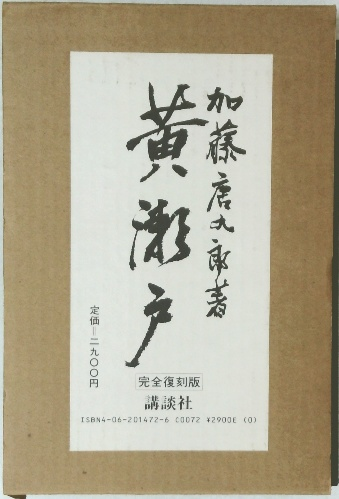 加藤唐九郎著
黄瀬戸
定価=二九〇〇円
完全復刻版
講談社
ISBN4-06-201472-6 C0072 ¥2900E (0)